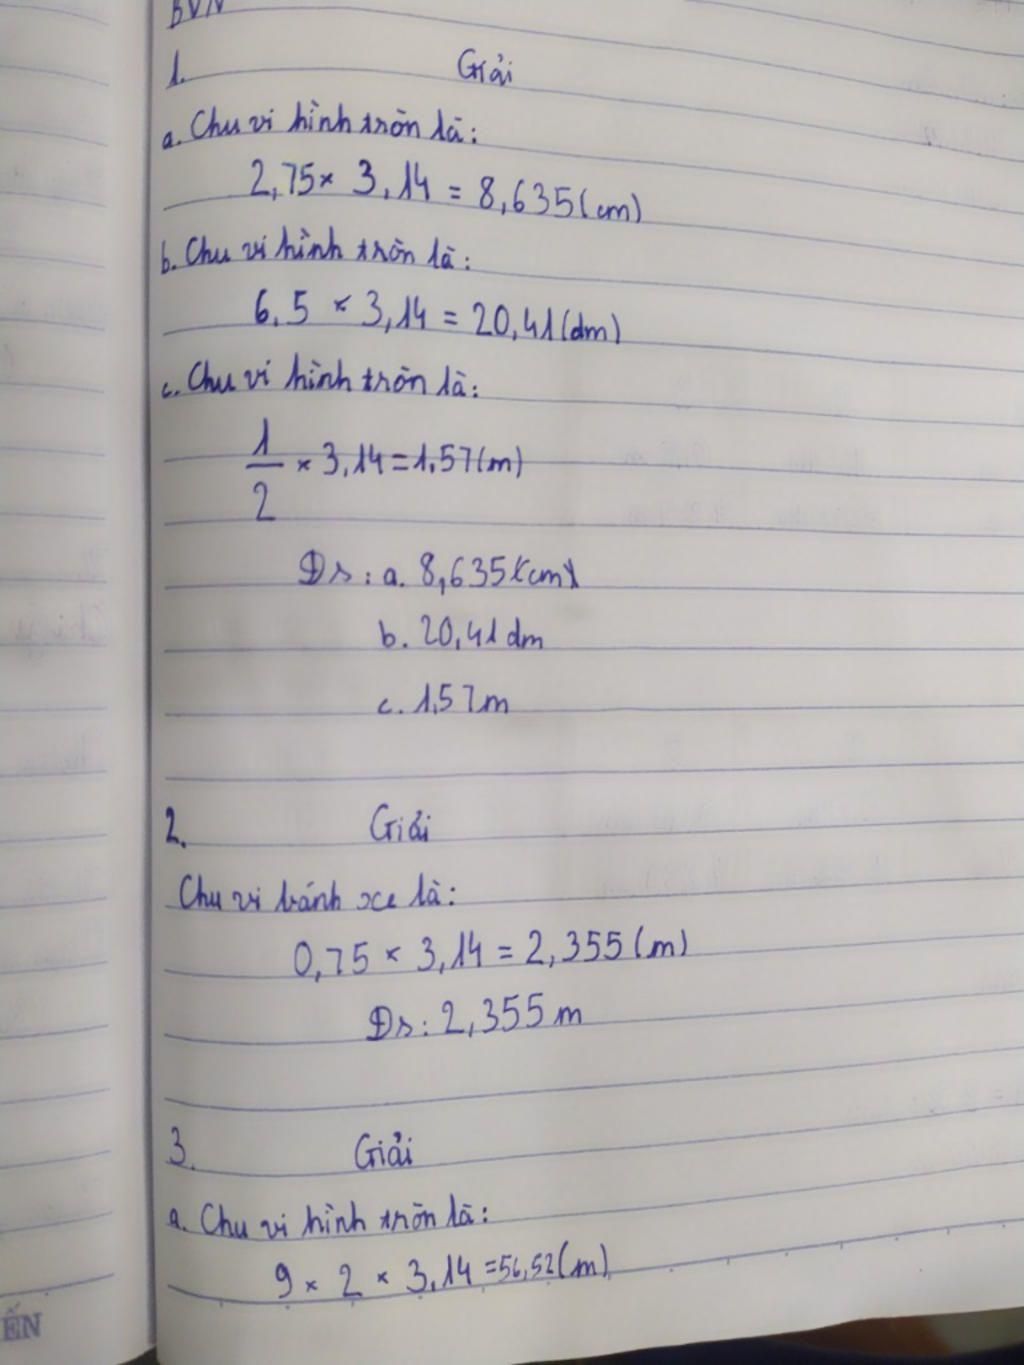 BVN
1. Giải
a. Chu vi hình tròn là:
2,75 × 3,14 = 8,635 (cm)
b. Chu vi hình tròn là:
6,5 × 3,14 = 20,41 (dm)
c. Chu vi hình tròn là:
1/2 × 3,14 = 1,57 (m)
Đs: a. 8,635 (cm)
b. 20,41 dm
c. 1,57 m
2. Giải
Chu vi bánh xe là:
0,75 × 3,14 = 2,355 (m)
Đs: 2,355 m
3. Giải
a. Chu vi hình tròn là:
9 × 2 × 3,14 = 56,52 (m)
ẾN